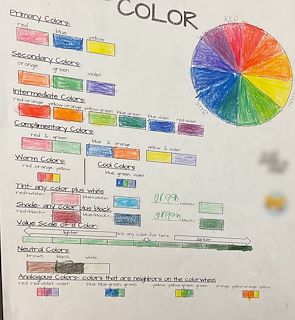 COLOR
Primary Colors:
red blue yellow
Secondary Colors:
orange green violet
Intermediate Colors:
red-orange yellow-orange yellow-green blue-green blue-violet red-violet
Complimentary Colors:
red & green blue & orange yellow & violet
Warm Colors: Cool Colors
red orange yellow blue green violet
Tint- any color plus white
red+white= blue+white= green +white=
Shade- any color plus black
red+black= blue+black= green +black=
Value Scale of a Color:
lighter pick any color for here darker
Neutral Colors:
brown black white
Analogous Colors- colors that are neighbors on the colorwheel
red red-violet violet blue blue-green green yellow yellow-green green orange yellow-orange yellow